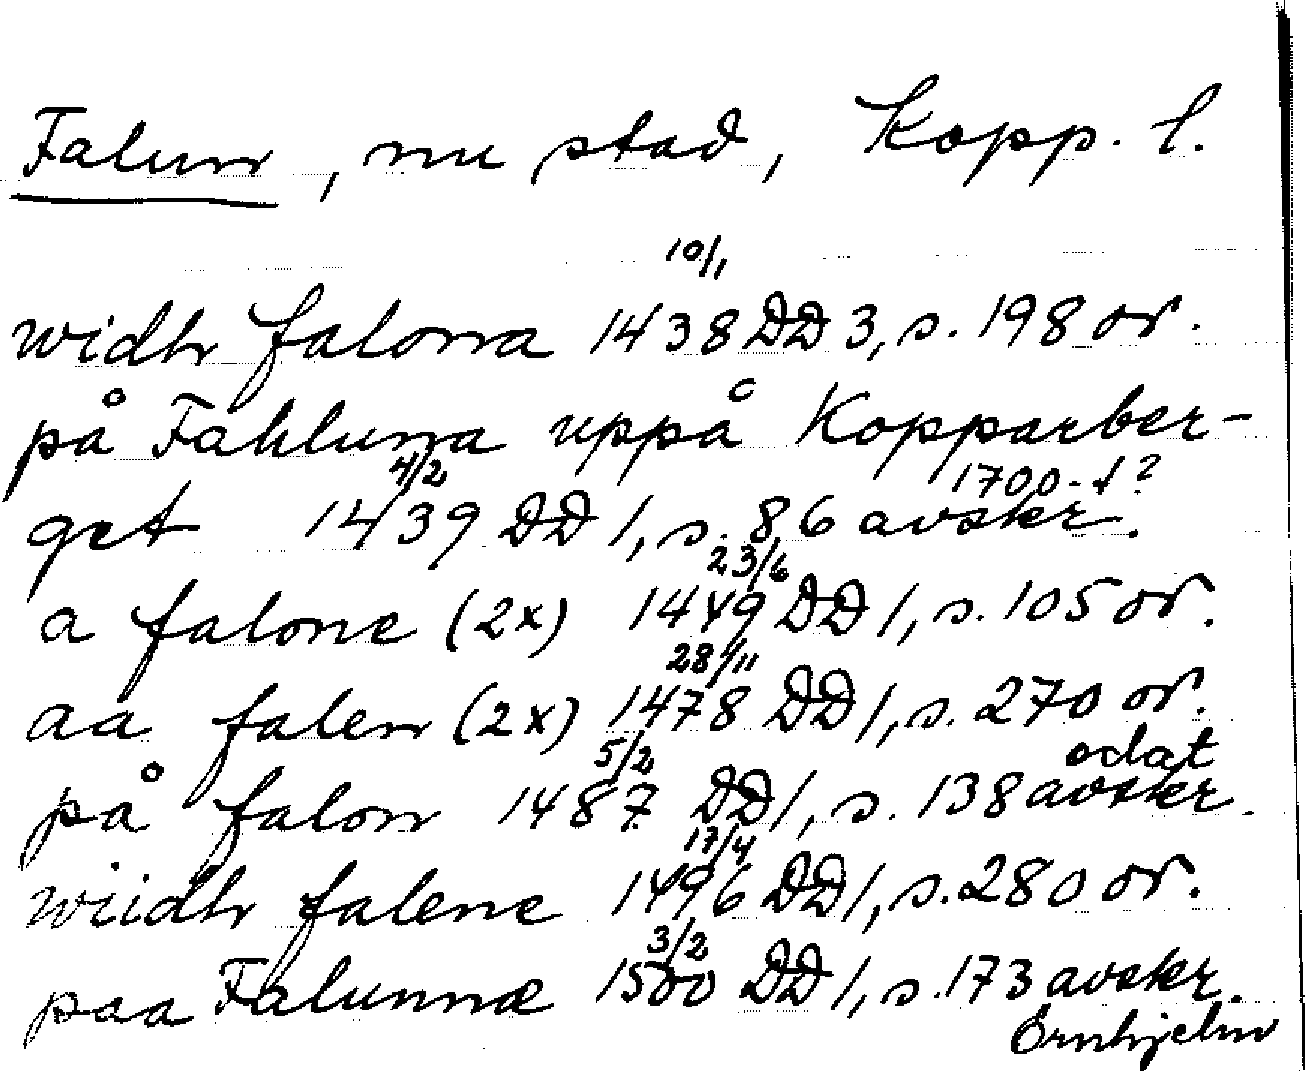 Falun, nu stad, Kopp. l.
10/1
widh falona 1438 DD 3, s. 198 or.
på Fahluna uppå Kopparber-
4/2 1700-t?
get 1439 DD 1, s. 86 avskr.
23/6
a falone (2x) 1449 DD 1, s. 105 or.
28/11
aa falen (2x) 1478 DD 1, s. 270 or.
5/2 odat
på falon 1487 DD 1, s. 138 avskr.
17/4
wiidh falene 1496 DD 1, s. 280 or.
3/2
paa Falunnæ 1500 DD 1, s. 173 avskr.
Örnhjelm